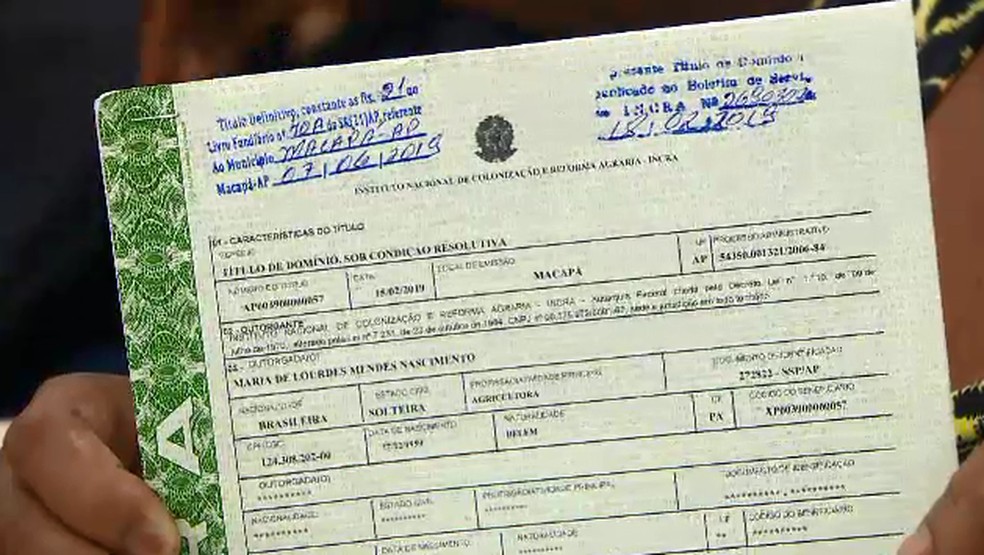 Título Definitivo, constante as Fls. 21 do
Livro Fundiário nº 70A da SR(21)AP, referente
Ao Município MACAPÁ-AP
Macapá-AP 07/06/2019
presente Título de Domínio
publicado no Boletim de Servi
no INCRA Nº
18/02/2019
INSTITUTO NACIONAL DE COLONIZAÇÃO E REFORMA AGRARIA - INCRA
01 - CARACTERÍSTICAS DO TÍTULO
ESPÉCIE
TÍTULO DE DOMÍNIO, SOB CONDIÇÃO RESOLUTIVA
UF
PROCESSO ADMINISTRATIVO
AP
54350.001321/2006-84
NÚMERO DO TÍTULO
DATA
LOCAL DE EMISSÃO
AP003900000057
15/02/2019
MACAPÁ
02 - OUTORGANTE
INSTITUTO NACIONAL DE COLONIZAÇÃO E REFORMA AGRARIA - INCRA - Autarquia Federal criada pelo Decreto Lei nº 1.110, de 09 de
julho de 1970, alterado pela Lei nº 7.231, de 23 de outubro de 1984, CNPJ nº sede e jurisdição em todo território
OUTORGADA(O)
MARIA DE LOURDES MENDES NASCIMENTO
DOCUMENTO DE IDENTIFICAÇÃO
272822 - SSP/AP
NACIONALIDADE
ESTADO CIVIL
PROFISSÃO/ATIVIDADE PRINCIPAL
BRASILEIRA
SOLTEIRA
AGRICULTORA
CPF
DATA DE NASCIMENTO
NATURALIDADE
UF
CÓDIGO DO BENEFICIÁRIO
124.308.202-00
BELEM
PA
AP003900000057
OUTORGADA(O)
**********
DOCUMENTO DE IDENTIFICAÇÃO
NACIONALIDADE
ESTADO CIVIL
PROFISSÃO/ATIVIDADE PRINCIPAL
DATA DE NASCIMENTO
NATURALIDADE
UF
CÓDIGO DO BENEFICIÁRIO
A